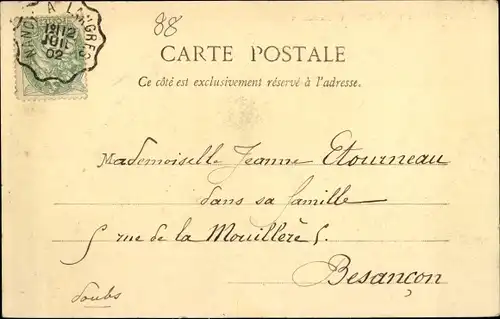 88
NANCY A LANGRES
12
JUIL
02
CARTE POSTALE
Ce côté est exclusivement réservé à l'adresse.
Mademoiselle Jeanne Etourneau
dans sa famille
5 rue de la Mouillère 5.
Besançon
Doubs